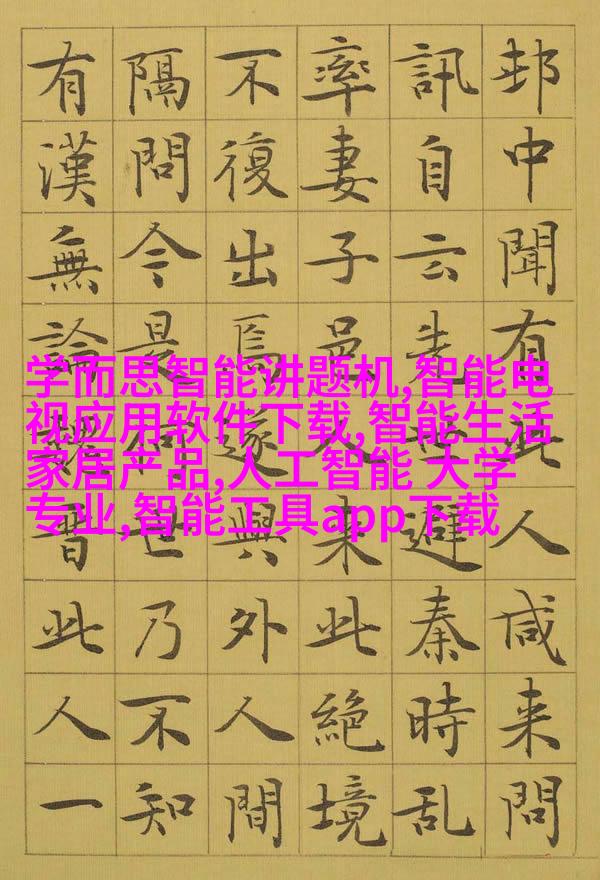 邨中聞有此人咸来問
訊自云先世避秦時乱
率妻子邑人来此絶境
不復出焉遂與外人間
隔問今是何世乃不知
有漢無論魏晋此人一
学而思智能讲题机,智能电
视应用软件下载,智能生活
家居产品,人工智能 大学
专业,智能工具app下载